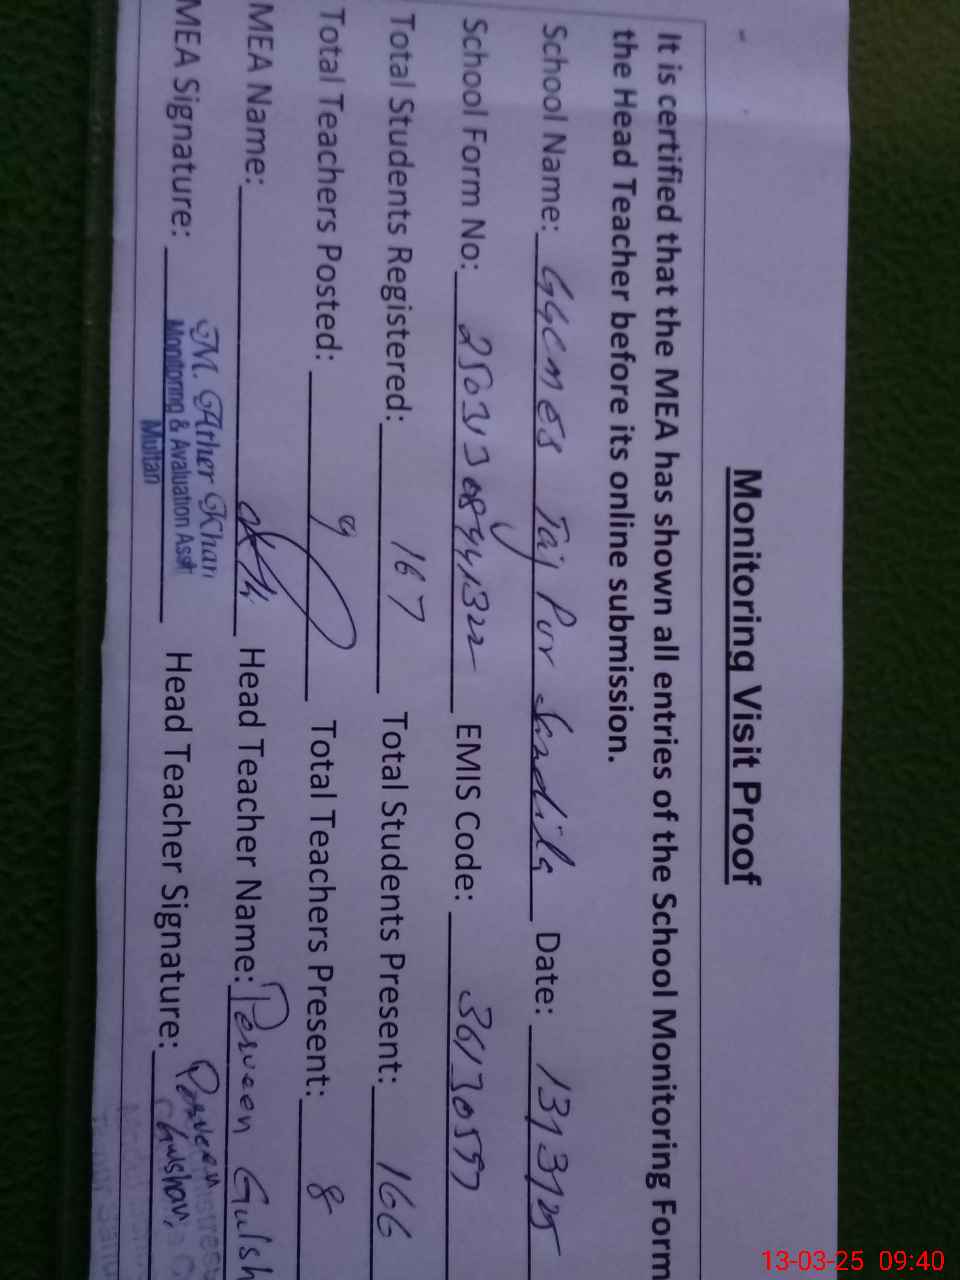 Monitoring Visit Proof
It is certified that the MEA has shown all entries of the School Monitoring Form
the Head Teacher before its online submission.
School Name: GGCMES Taj Pur Sandila Date: 13/3/25
School Form No: EMIS Code:
Total Students Registered: 167 Total Students Present: 166
Total Teachers Posted: 9 Total Teachers Present: 8
MEA Name: Head Teacher Name: Perveen Gulsh
MEA Signature: Head Teacher Signature: Perveen Gulshan
M. Ather Khan
Monitoring & Avaluation Asstt
Multan
13-03-25 09:40